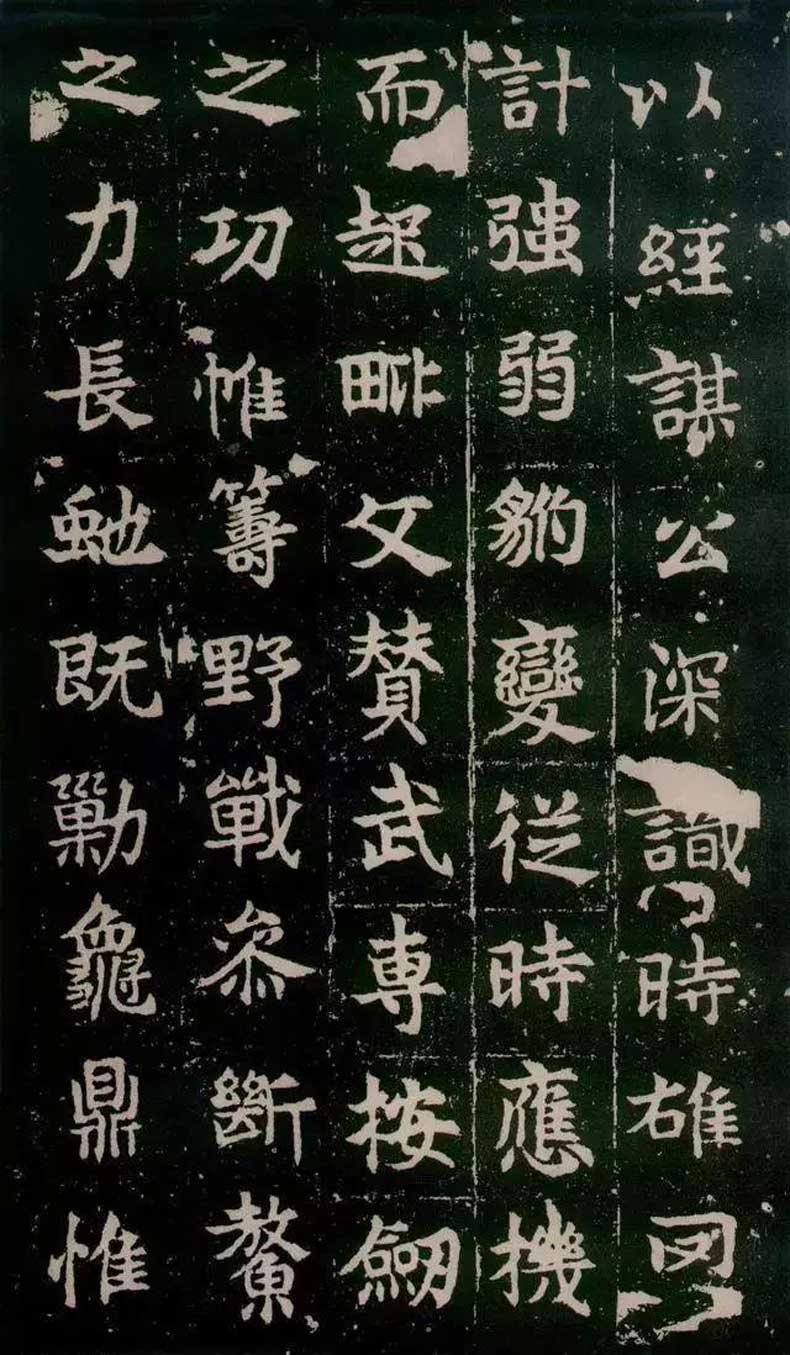 以經謀公深識時雄
計強弱豹變從時應機
而起毗文賛武專按劒
之功帷籌野戰參斷鼇
之力長虵既勦龜鼎惟